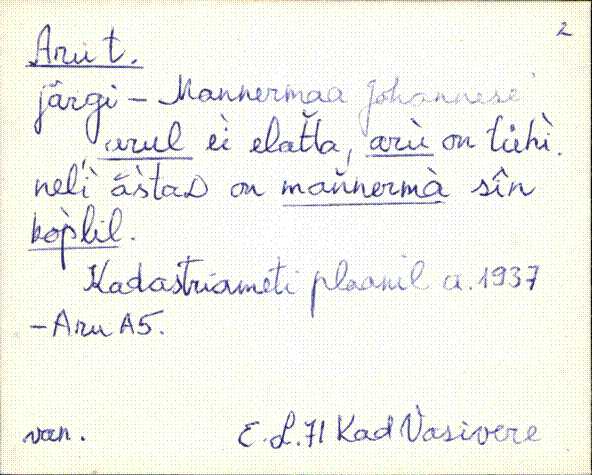 2
Aru t.
järgi – Mannermaa Johannese
arul èi elatta, arù on tühì.
nelì ästaD on mannermà sîn
kòplil.
Kadastriameti plaanil a. 1937
– Aru A5.
van. E. L. 71 Kad Vasivere